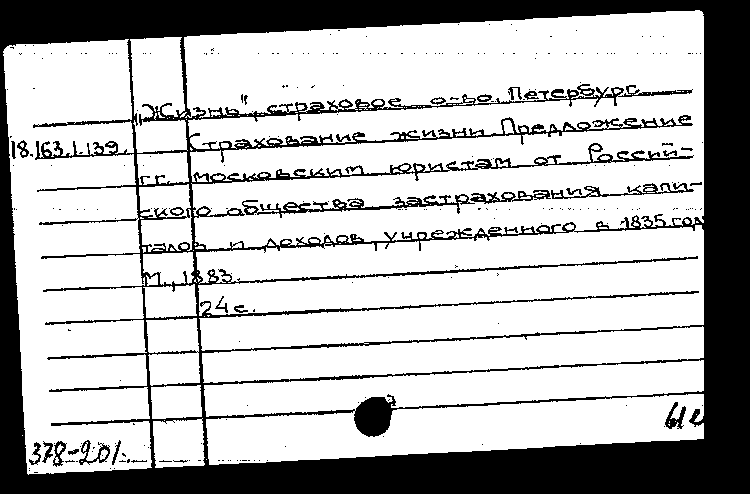 „Жизнь", страховое о-во. Петербург.
18.163.1.139. Страхование жизни. Предложение
гг. московским юристам от Россий-
ского общества застрахования капи-
талов и доходов, учрежденного в 1835 год
М., 1883.
24 с.
378-201.